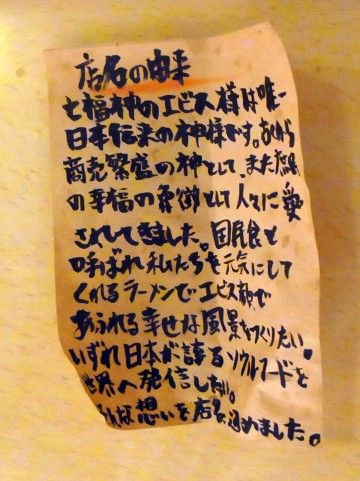 店名の由来
七福神のエビス様は唯一
日本伝来の神様です。古くから
商売繁盛の神として、また庶民
の幸福の象徴として人々に愛
されてきました。国民食と
呼ばれ私たちを元気にして
くれるラーメンでエビス顔で
あふれる幸せな風景をつくりたい。
いずれ日本が誇るソウルフードを
世界へ発信したい。
そんな想いを店名に込めました。